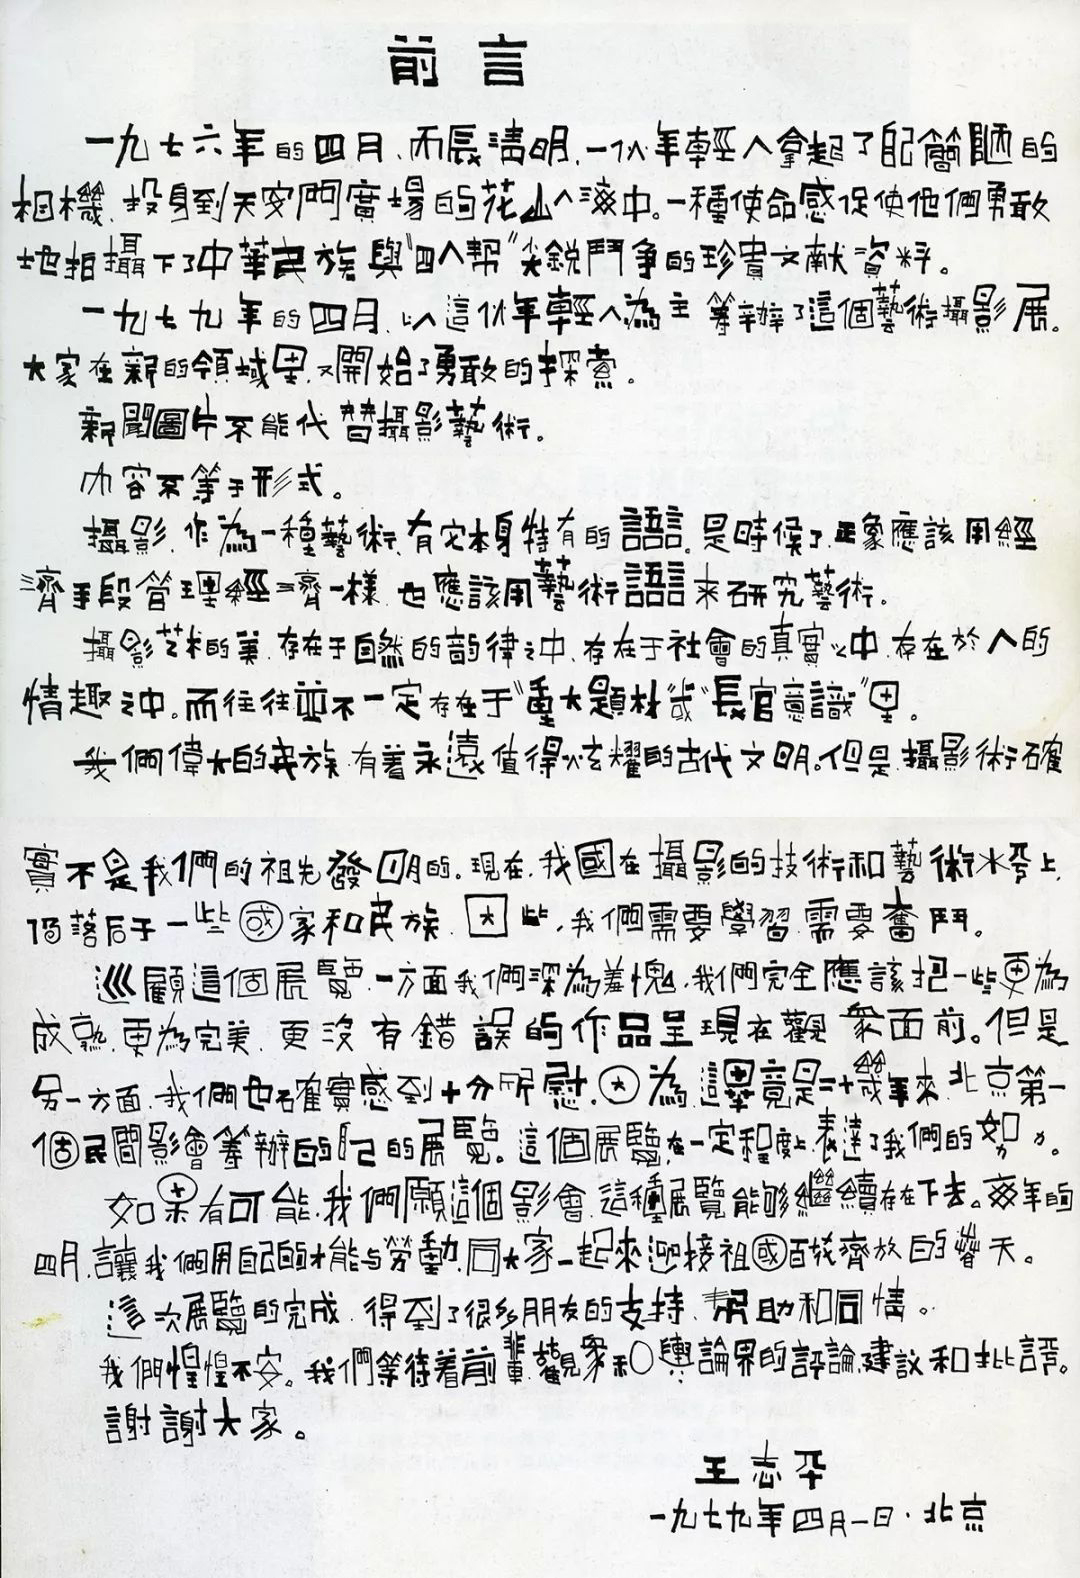 前言
一九七六年的四月、丙辰清明、一伙年輕人拿起了自己簡陋的
相機、投身到天安門廣場的花山人海中。一種使命感促使他們勇敢
地拍攝下了中華民族與“四人幫”尖銳鬥争的珍貴文献資料。
一九七九年的四月、以這伙年輕人為主籌辦了這個藝術攝影展。
大家在新的領域里、又開始了勇敢的探索。
新聞圖片不能代替攝影藝術。
内容不等于形式。
攝影、作為一種藝術、有它本身特有的語言。是時候了、正象應該用經
濟手段管理經濟一樣、也應該用藝術語言來研究藝術。
攝影艺术的美、存在于自然的韵律之中、存在于社會的真實之中、存在於人的
情趣之中。而往往並不一定存在于“重大題材”或“長官意識”里。
我們偉大的民族、有着永遠值得以炫耀的古代文明。但是、攝影術確
實不是我們的祖先發明的。現在、我國在攝影的技術和藝術水平上、
仍落后于一些國家和民族、因此、我們需要學習、需要奮鬥。
巡顧這個展覽、一方面我們深為羞愧、我們完全應該把一些更為
成熟、更為完美、更没有錯誤的作品呈現在觀衆面前。但是
另一方面、我們也確實感到十分欣慰、因為、這畢竟是二十幾年來、北京第一
個民間影會籌辦的自己的展覽。這個展覽在一定程度上表達了我們的努力。
如果有可能、我們願這個影會、這種展覽能够繼續存在下去。每年的
四月、讓我們用自己的才能与勞動、同大家一起來迎接祖國百花齊放的春天。
這次展覽的完成、得到了很多朋友的支持、幫助和同情。
我們惶惶不安。我們等待着前輩、觀衆和輿論界的評論、建議和批評。
謝謝大家。
王志平
一九七九年四月一日·北京